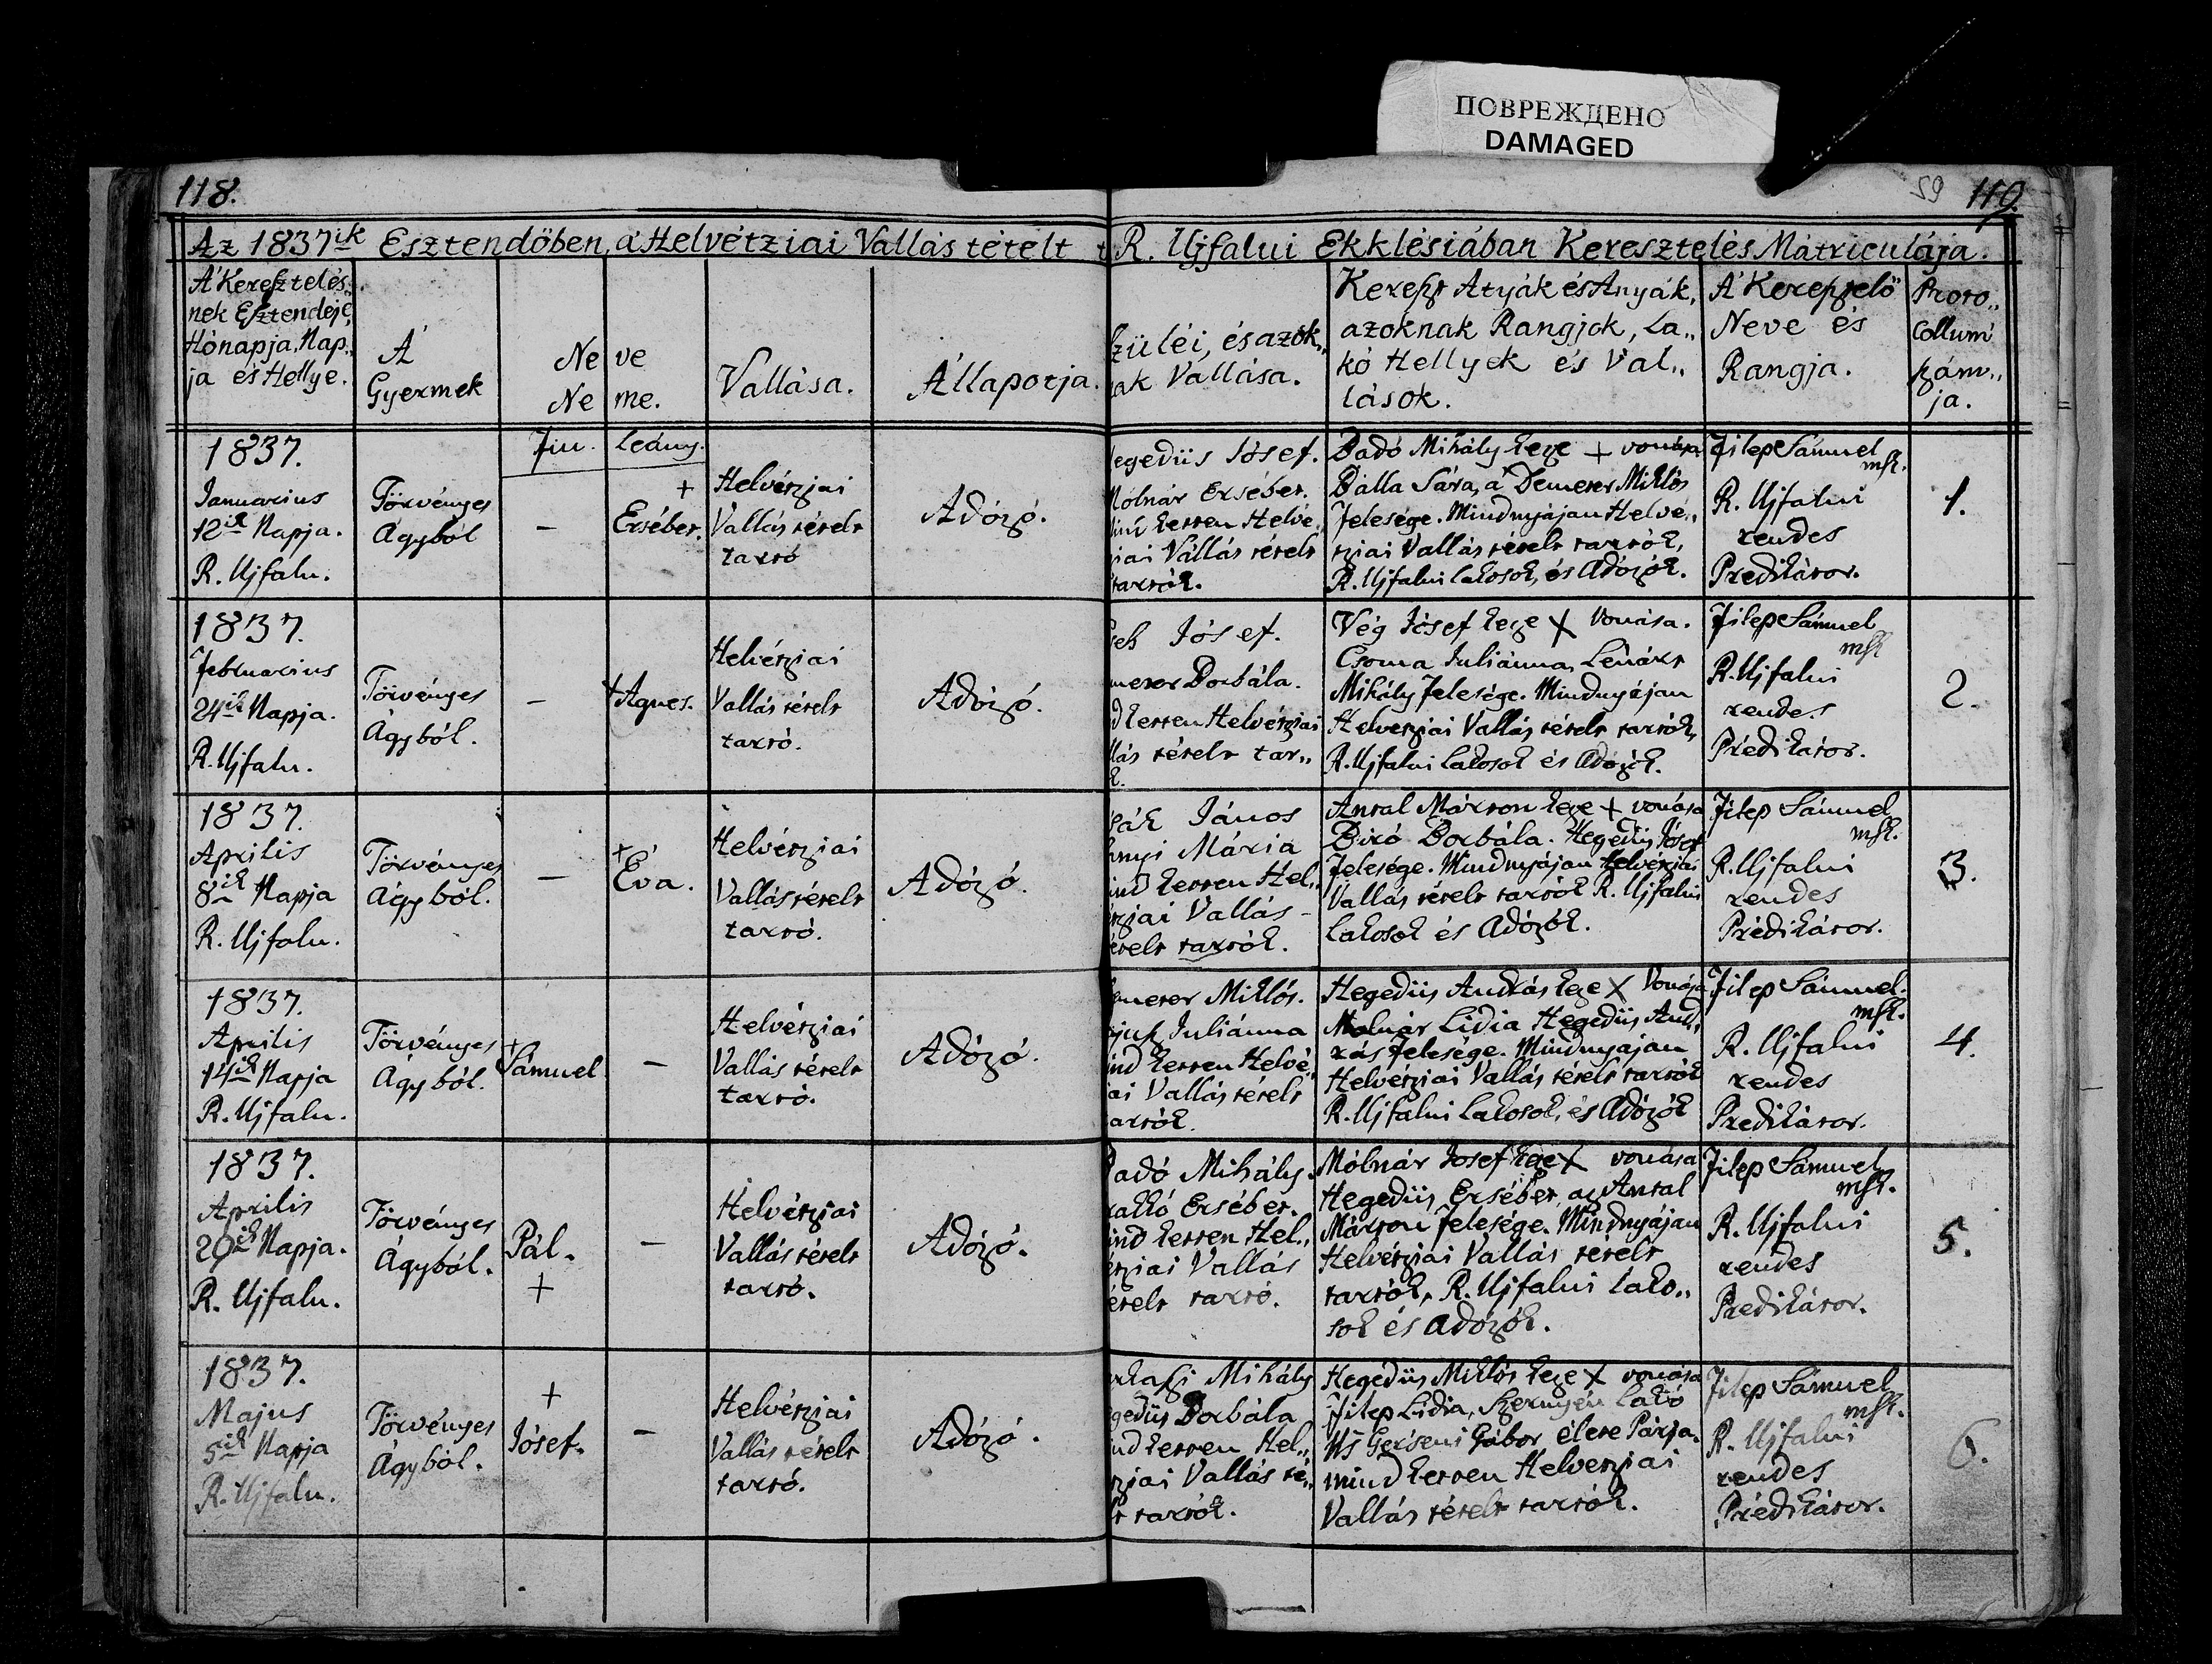 ПОВРЕЖДЕНО
DAMAGED
118.
59 119
Az 1837ik Esztendőben, a Helvétziai Vallás tételt
R. Ujfalui Ekklésiában Keresztelés Mátriculája.
A' Keresztelés„
nek Esztendeje,
Hónapja, Nap„
ja és Hellye.
A'
Gyermek
Neve
Neme.
Vallása.
Állapotja.
züléi, és azok„
ak Vallása.
Kereszt Atyák és Anyák,
azoknak Rangjok, La„
kó Hellyek és Val„
lások.
A' Keresztelő
Neve és
Rangja.
Proto„
collum
szám„
ja.
Fiu. Leány.
1837.
Januarius
12ik Napja.
R. Ujfalu.
Törvényes
Ágyból
—
+
Ersébet.
Helvétziai
Vallás tételt
tartó
Adózó.
egedüs Jósef.
ólnár Ersébet.
ketten Helvé„
iai Vallás tételt
tartók.
Dadó Mihály keze + vonása
Balla Sára, a' Demeter Miklós
felesége. Mindnyájan Helvé„
tziai Vallás tételt tartók,
R. Ujfalui lakosok, és Adózók.
Filep Sámuel
msk.
R. Ujfalui
rendes
Predikátor.
1.
1837.
Februarius
24ik Napja.
R. Ujfalu.
Törvényes
Ágyból.
—
+ Agnes.
Helvétziai
Vallás tételt
tartó.
Adózó.
Jósef.
meter Borbála.
d ketten Helvétziai
lás tételt tar„
k.
Vég Jósef keze X vonása.
Csoma Juliánna, Lénárt
Mihály felesége. Mindnyájan
Helvetziai Vallás tételt tartók,
R. Ujfalui lakosok és Adózók.
Filep Sámuel
msk
R. Ujfalui
rendes
Prédikátor.
2.
1837.
Aprilis
8ik Napja
R. Ujfalu.
Törvényes
Ágyból.
—
+
Éva.
Helvétziai
Vallás tételt
tartó.
Adózó.
János
nyi Mária
ind ketten Hel„
tziai Vallás
ételt tartók.
Antal Márton keze + vonása
Biró Borbála. Hegedüs Jósef
felesége. Mindnyájan Helvétziai
Vallás tételt tartók R. Ujfalui
lakosok és Adózók.
Filep Sámuel
msk.
R. Ujfalui
rendes
Prédikátor.
3.
1837.
Aprilis
14ik Napja
R. Ujfalu.
Törvényes
Ágyból.
+
Sámuel
—
Helvétziai
Vallás tételt
tartó.
Adózó.
emeter Miklós.
Juliánna
ind ketten Helvé„
ai Vallás tételt
artók.
Hegedüs András keze X vonása
Molnár Lidia Hegedüs And„
rás felesége. Mindnyajan
Helvétziai Vallás tételt tartók
R. Ujfalui lakosok, és Adózók
Filep Sámuel.
msk.
R. Ujfalui
rendes
Predikátor.
4.
1837.
Aprilis
29ik Napja.
R. Ujfalu.
Törvényes
Ágyból.
Pál.
+
—
Helvétziai
Vallás tételt
tartó.
Adózó.
adó Mihály.
Ersébet.
ind ketten Hel„
tziai Vallás
ételt tartó.
Mólnár Josef keze X vonása
Hegedüs Ersébet az Antal
Márton felesége. Mindnyájan
Helvétziai Vallás tételt
tartók, R. Ujfalui lako„
sok és Adózók.
Filep Sámuel
msk.
R. Ujfalui
rendes
Predikátor.
5.
1837.
Majus
5ik Napja
R. Ujfalu.
Törvényes
Ágyból.
+
Jósef.
—
Helvétziai
Vallás tételt
tartó.
Adózó.
Mihály
gedüs Borbála
nd ketten Hel„
tziai Vallás té„
t tartók.
Hegedüs Miklós keze X vonása
Filep Lidia, Szernyén lakó
Gábor élete Párja.
mind ketten Helvetziai
Vallás tételt tartók.
Filep Sámuel
msk.
R. Ujfalui
rendes
Prédikátor.
6.